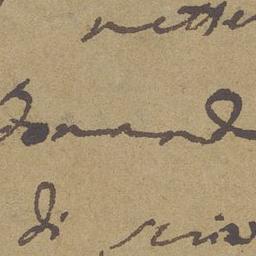 mette
Domand
di scriv